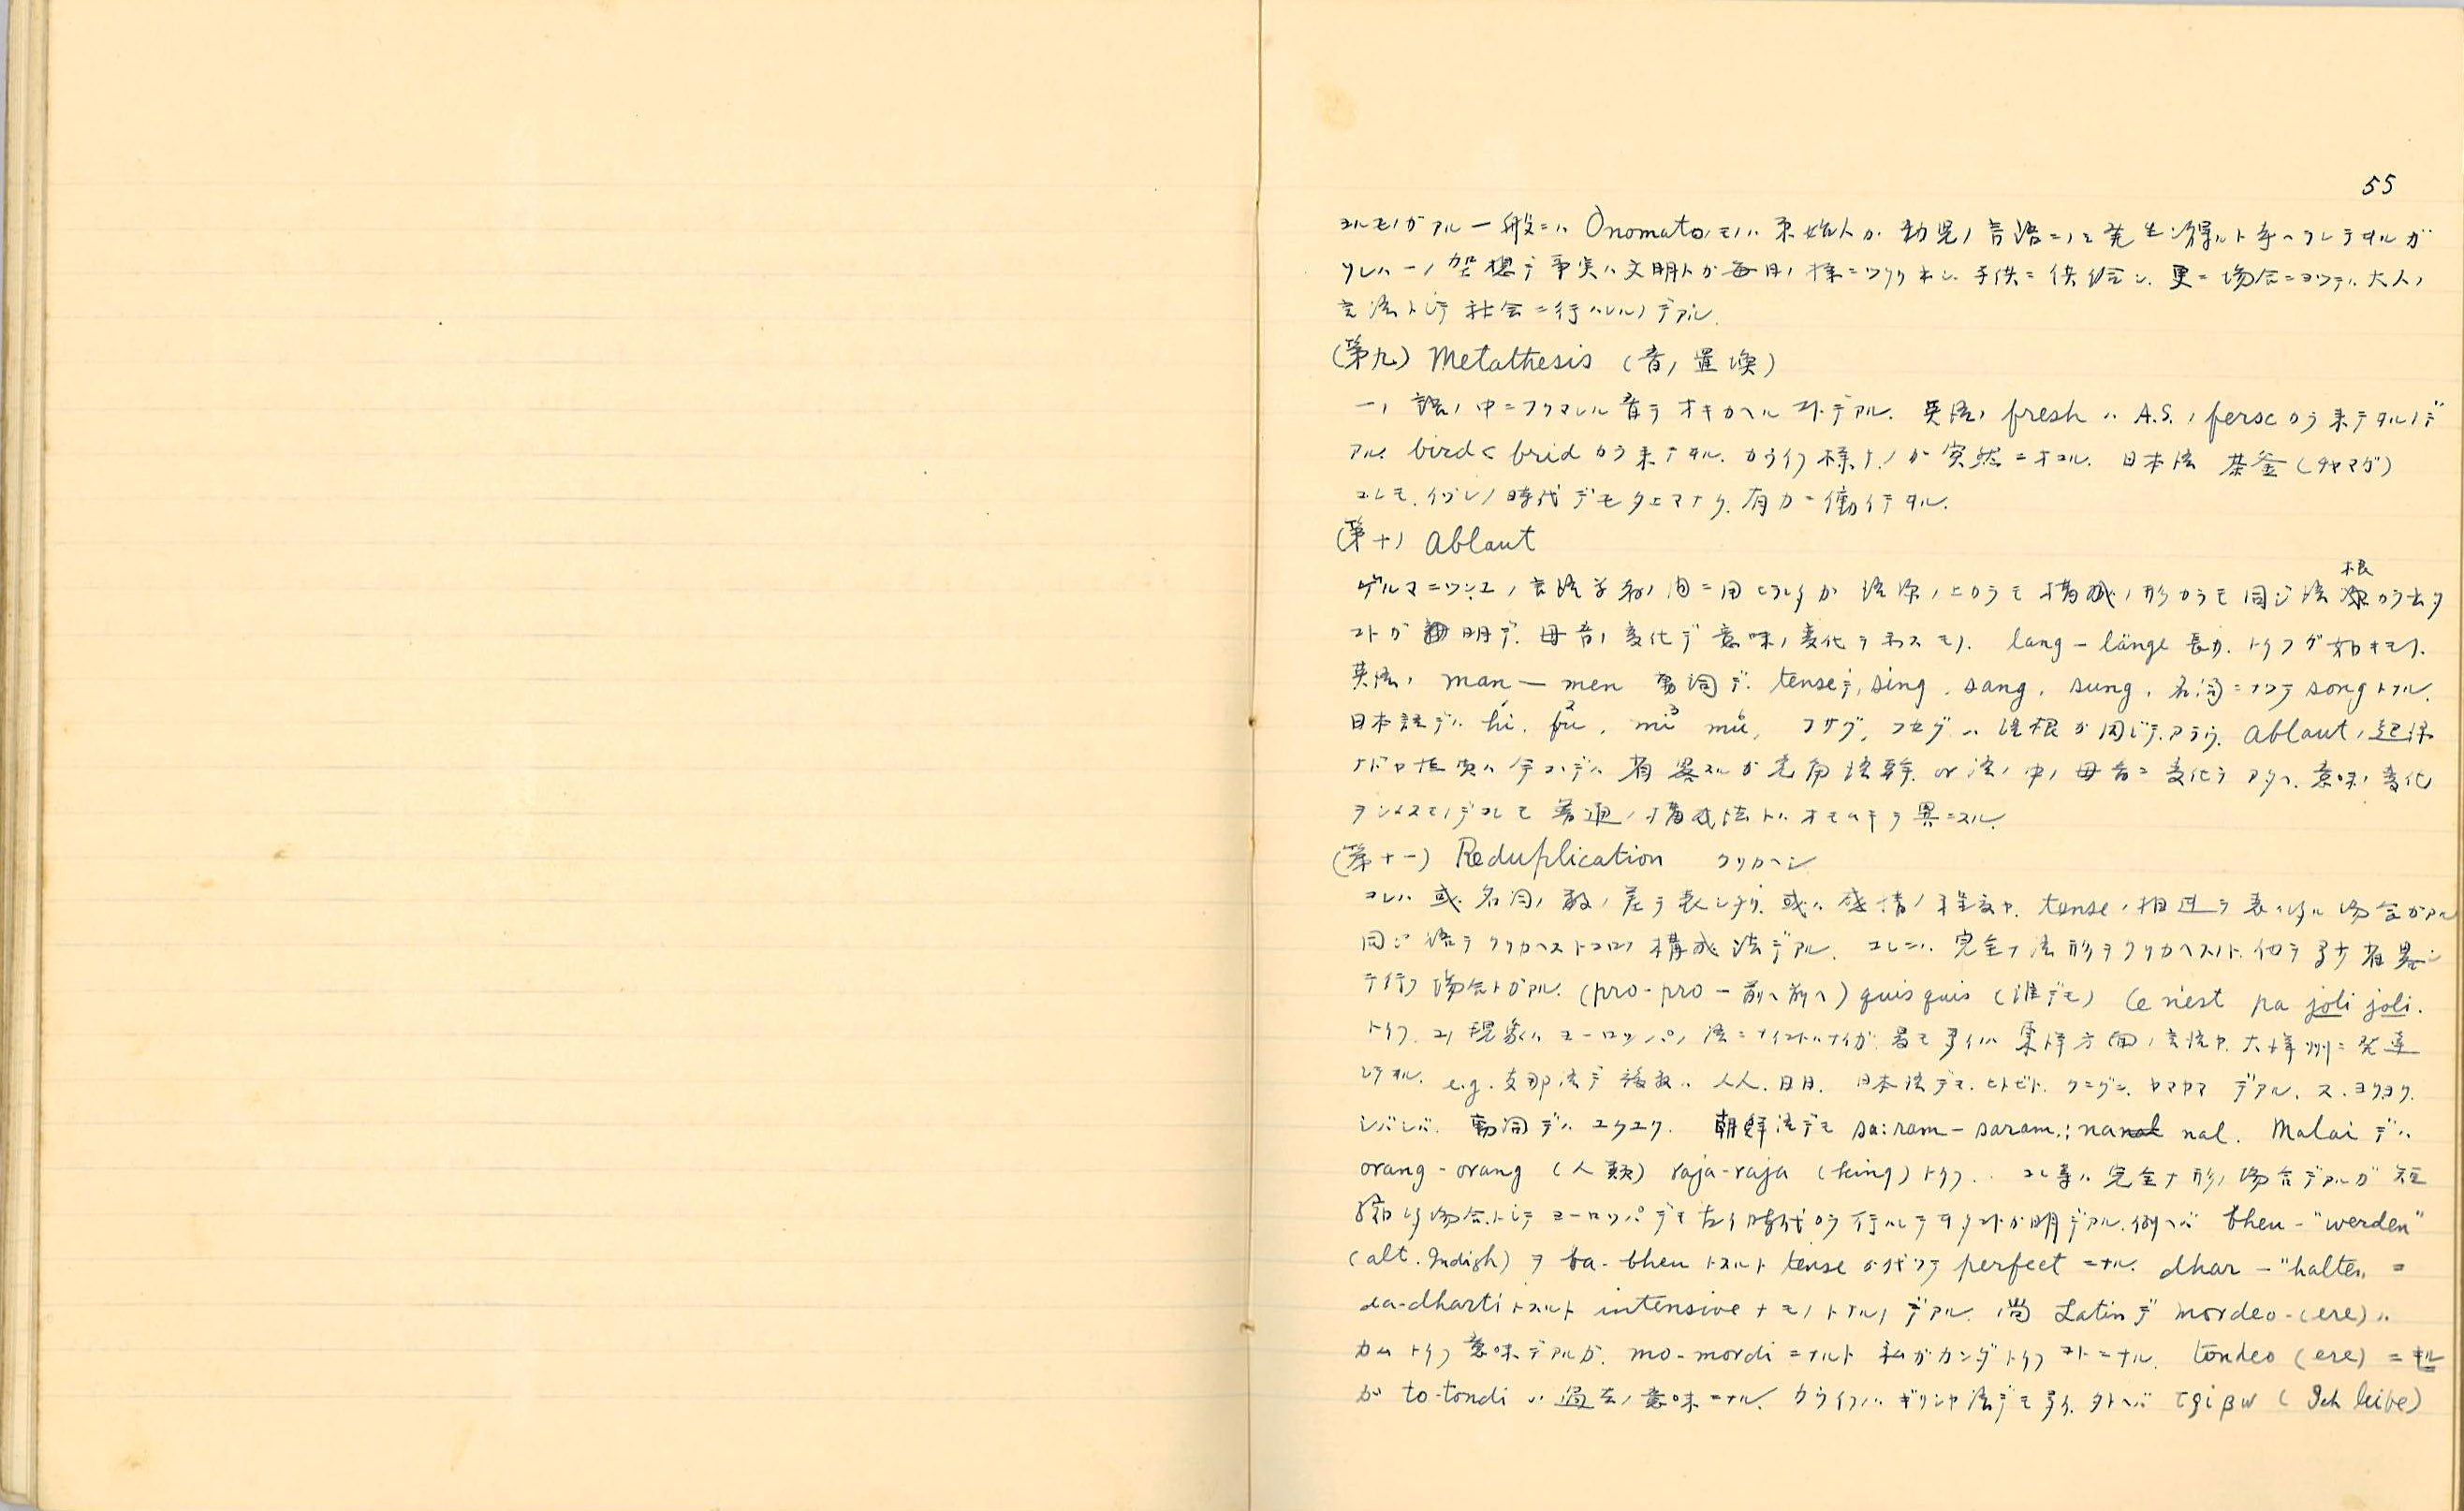 55
コルモノガアル 一般ニハ Onomatoノモノハ 原始人カ 幼児ノ言語ニノミ発生シ得ルト考ヘラレテヰルガ
ソレハ一ノ空想デ事実ハ文明人ガ毎日ノ様ニツクリ出シ、子供ニ供給シ、更ニ場合ニヨツテハ大人ノ
言語トシテ社会ニ行ハレルノデアル。
(第九) Metathesis (音ノ置換)
一ノ語ノ中ニフクマレル音ヲオキカヘルコトデアル. 英語ノ fresh ハ A.S.ノ fersc カラ来テヰルノデ
アル. bird < brid カラ来テヰル. カウイフ様ナノガ突然ニオコル. 日本語 茶釜 (チヤマガ)
コレモ、イヅレノ時代デモタエマナク、有力ニ働イテヰル.
(第十) Ablaut
ゲルマニツシエノ言語学者ノ間ニ用ヒラレタガ 語源ノ上カラモ構成ノ形カラモ同ジ語根カラ出タ
コトガ 明デ. 母音ノ変化デ意味ノ変化ヲ示スモノ. lang - länge 長サ. トイフガ如キモノ.
英語ノ man — men 動詞デ. tenseデ, sing, sang, sung, 名詞ニナツテ song トナル.
日本語デハ hi, fu, mi mu, フサグ, フセグ ハ語根ガ同ジデアラウ. ablautノ起源
ナドヤ性質ハ今コヽデハ省畧スルガ兎角語幹 or 語ノ中ノ母音ニ変化ヲアタヘ、意味ノ変化
ヲシメスモノデコレモ普通ノ構成法トハオモムキヲ異ニスル.
(第十一) Reduplication クリカヘシ
コレハ 或ハ名詞ノ数ノ差ヲ表シタリ、或ハ感情ノ程度ヤ、tenseノ相違ヲ表ハシタル場合ガアル
同ジ語ヲクリカヘストコロノ構成法デアル. コレニハ 完全ナ語形ヲクリカヘスノト、他ヲ多少省畧シ
テ行フ場合トガアル. (pro-pro — 前ヘ前ヘ) quis quis (誰デモ) Ce n'est pa joli joli.
トイフ. コノ現象ハヨーロッパノ語ニナイコトハナイガ、最モ多イノハ東洋方面ノ言語ヤ、大洋州ニ発達
シテヰル. e.g. 支那語デ複数ハ 人人, 日日. 日本語デモ、ヒトビト、クニグニ、ヤマヤマ デアル、又、ヨクヨク、
シバシバ. 動詞デハ ユクユク. 朝鮮語デモ sa:ram-saram; nanal nal. Malai デハ
orang-orang (人類) raja-raja (king) トイフ.. コレ等ハ完全ナ形ノ場合デアルガ 短
縮シタ場合トシテヨーロッパデモ古イ時代カラ行ハレテヰタコトガ明デアル. 例ヘバ bheu-"werden"
(alt. Indish) ヲ ba-bheu トスルト tense ガ代ツテ perfect ニナル. dhar-"halten =
da-dharti トスルト intensive ナモノトナルノデアル. 尚 Latin デ mordeo-(ere) ハ
カム トイフ意味デアルガ, mo-mordi ニナルト 私ガカンダトイフコトニナル. tondeo (ere) = キル
ガ to-tondi ハ過去ノ意味ニナル. カウイフノハギリシヤ語デモ多イ. タトヘバ τρίβω (Ich leibe)